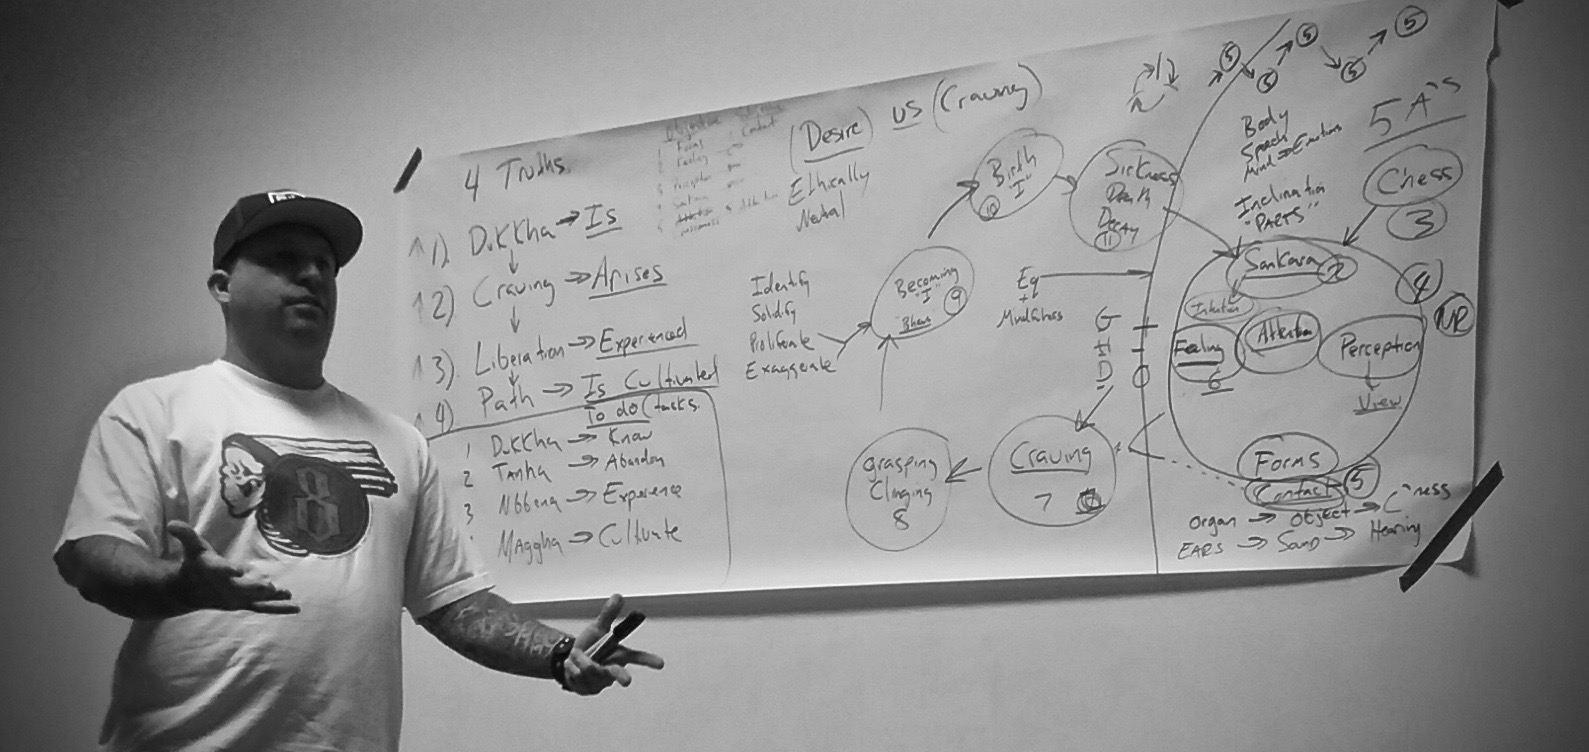 4 Truths.
1) Dukkha → Is
2) Craving → Arises
3) Liberation → Experienced
4) Path → Is Cultivated
To do (tasks.
1 Dukkha → Know
2 Tanha → Abandon
3 Nbbana → Experience
Maggha → Cultivate
Objective
1 Forms
Contact
Feeling
(Desire) vs (Craving)
Ethically
Neutral
Identify
Solidify
Proliferate
Exaggerate
Becoming
"I"
Bhava
9
Birth
"I"
10
Sickness
Death
Decay
11
Eq
+
Mindfulness
G +
H -
D O
Craving
7
grasping
Clinging
8
5 5 5 5 5
5 A's
Body
Speech
Mind → Emotions
Inclination
"PARTS"
C'ness
3
Sankara 2
4
NP
Intention
Feeling
6
Attention
Perception
View
Forms
Contact 5
Organ → Object → C'ness
EARS → Sound → Hearing
8